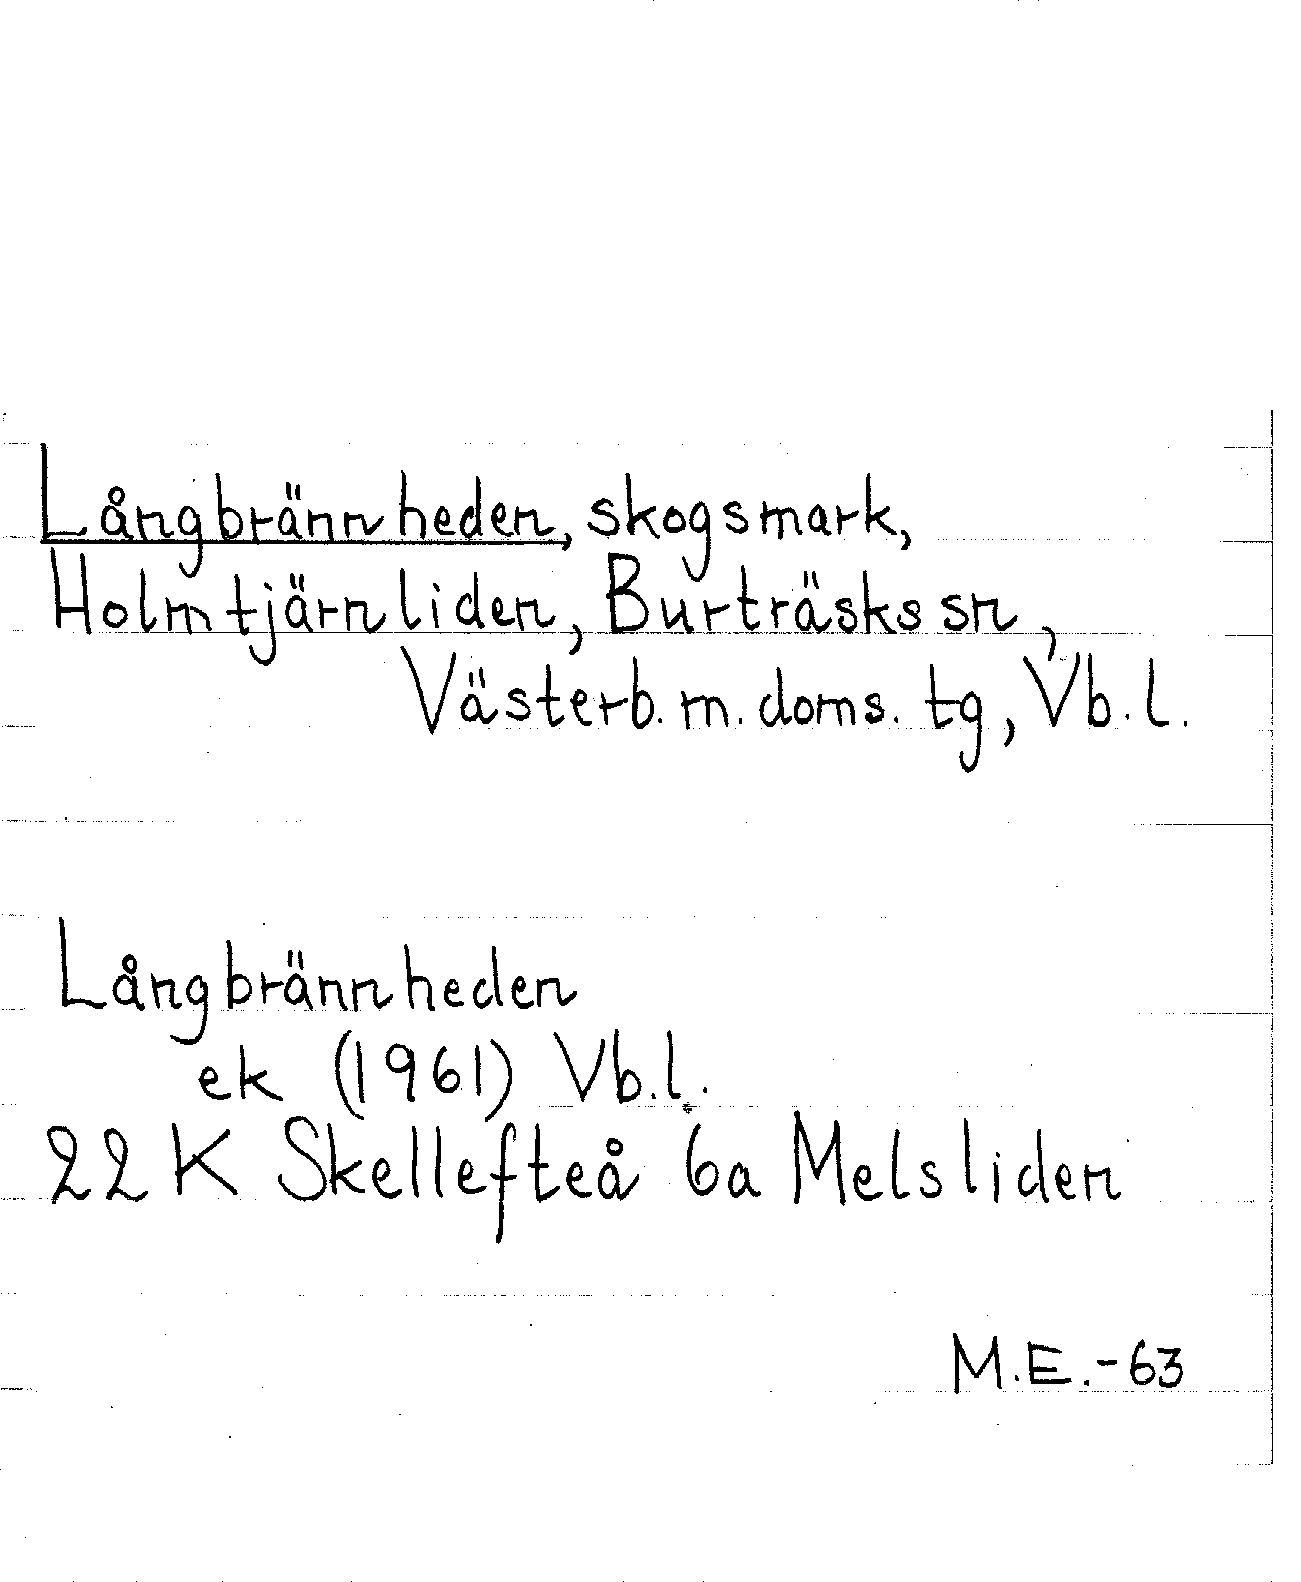 Långbrännheden, skogsmark,
Holmtjärnliden, Burträsks sn,
Västerb. m. doms. tg, Vb. l.
Långbrännheden
ek (1961) Vb.l.
22 K Skellefteå 6a Melsliden
M.E.-63